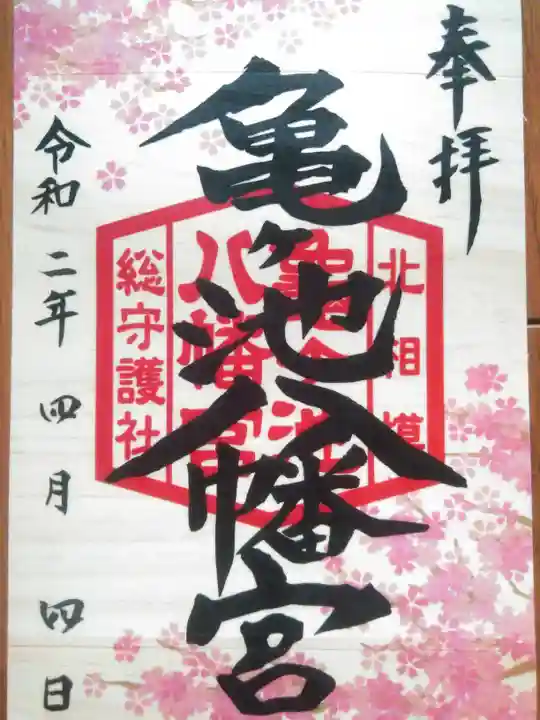 奉拝
北相模
亀ヶ池
八幡宮
総守護社
亀ヶ池八幡宮
令和二年 四月 四日